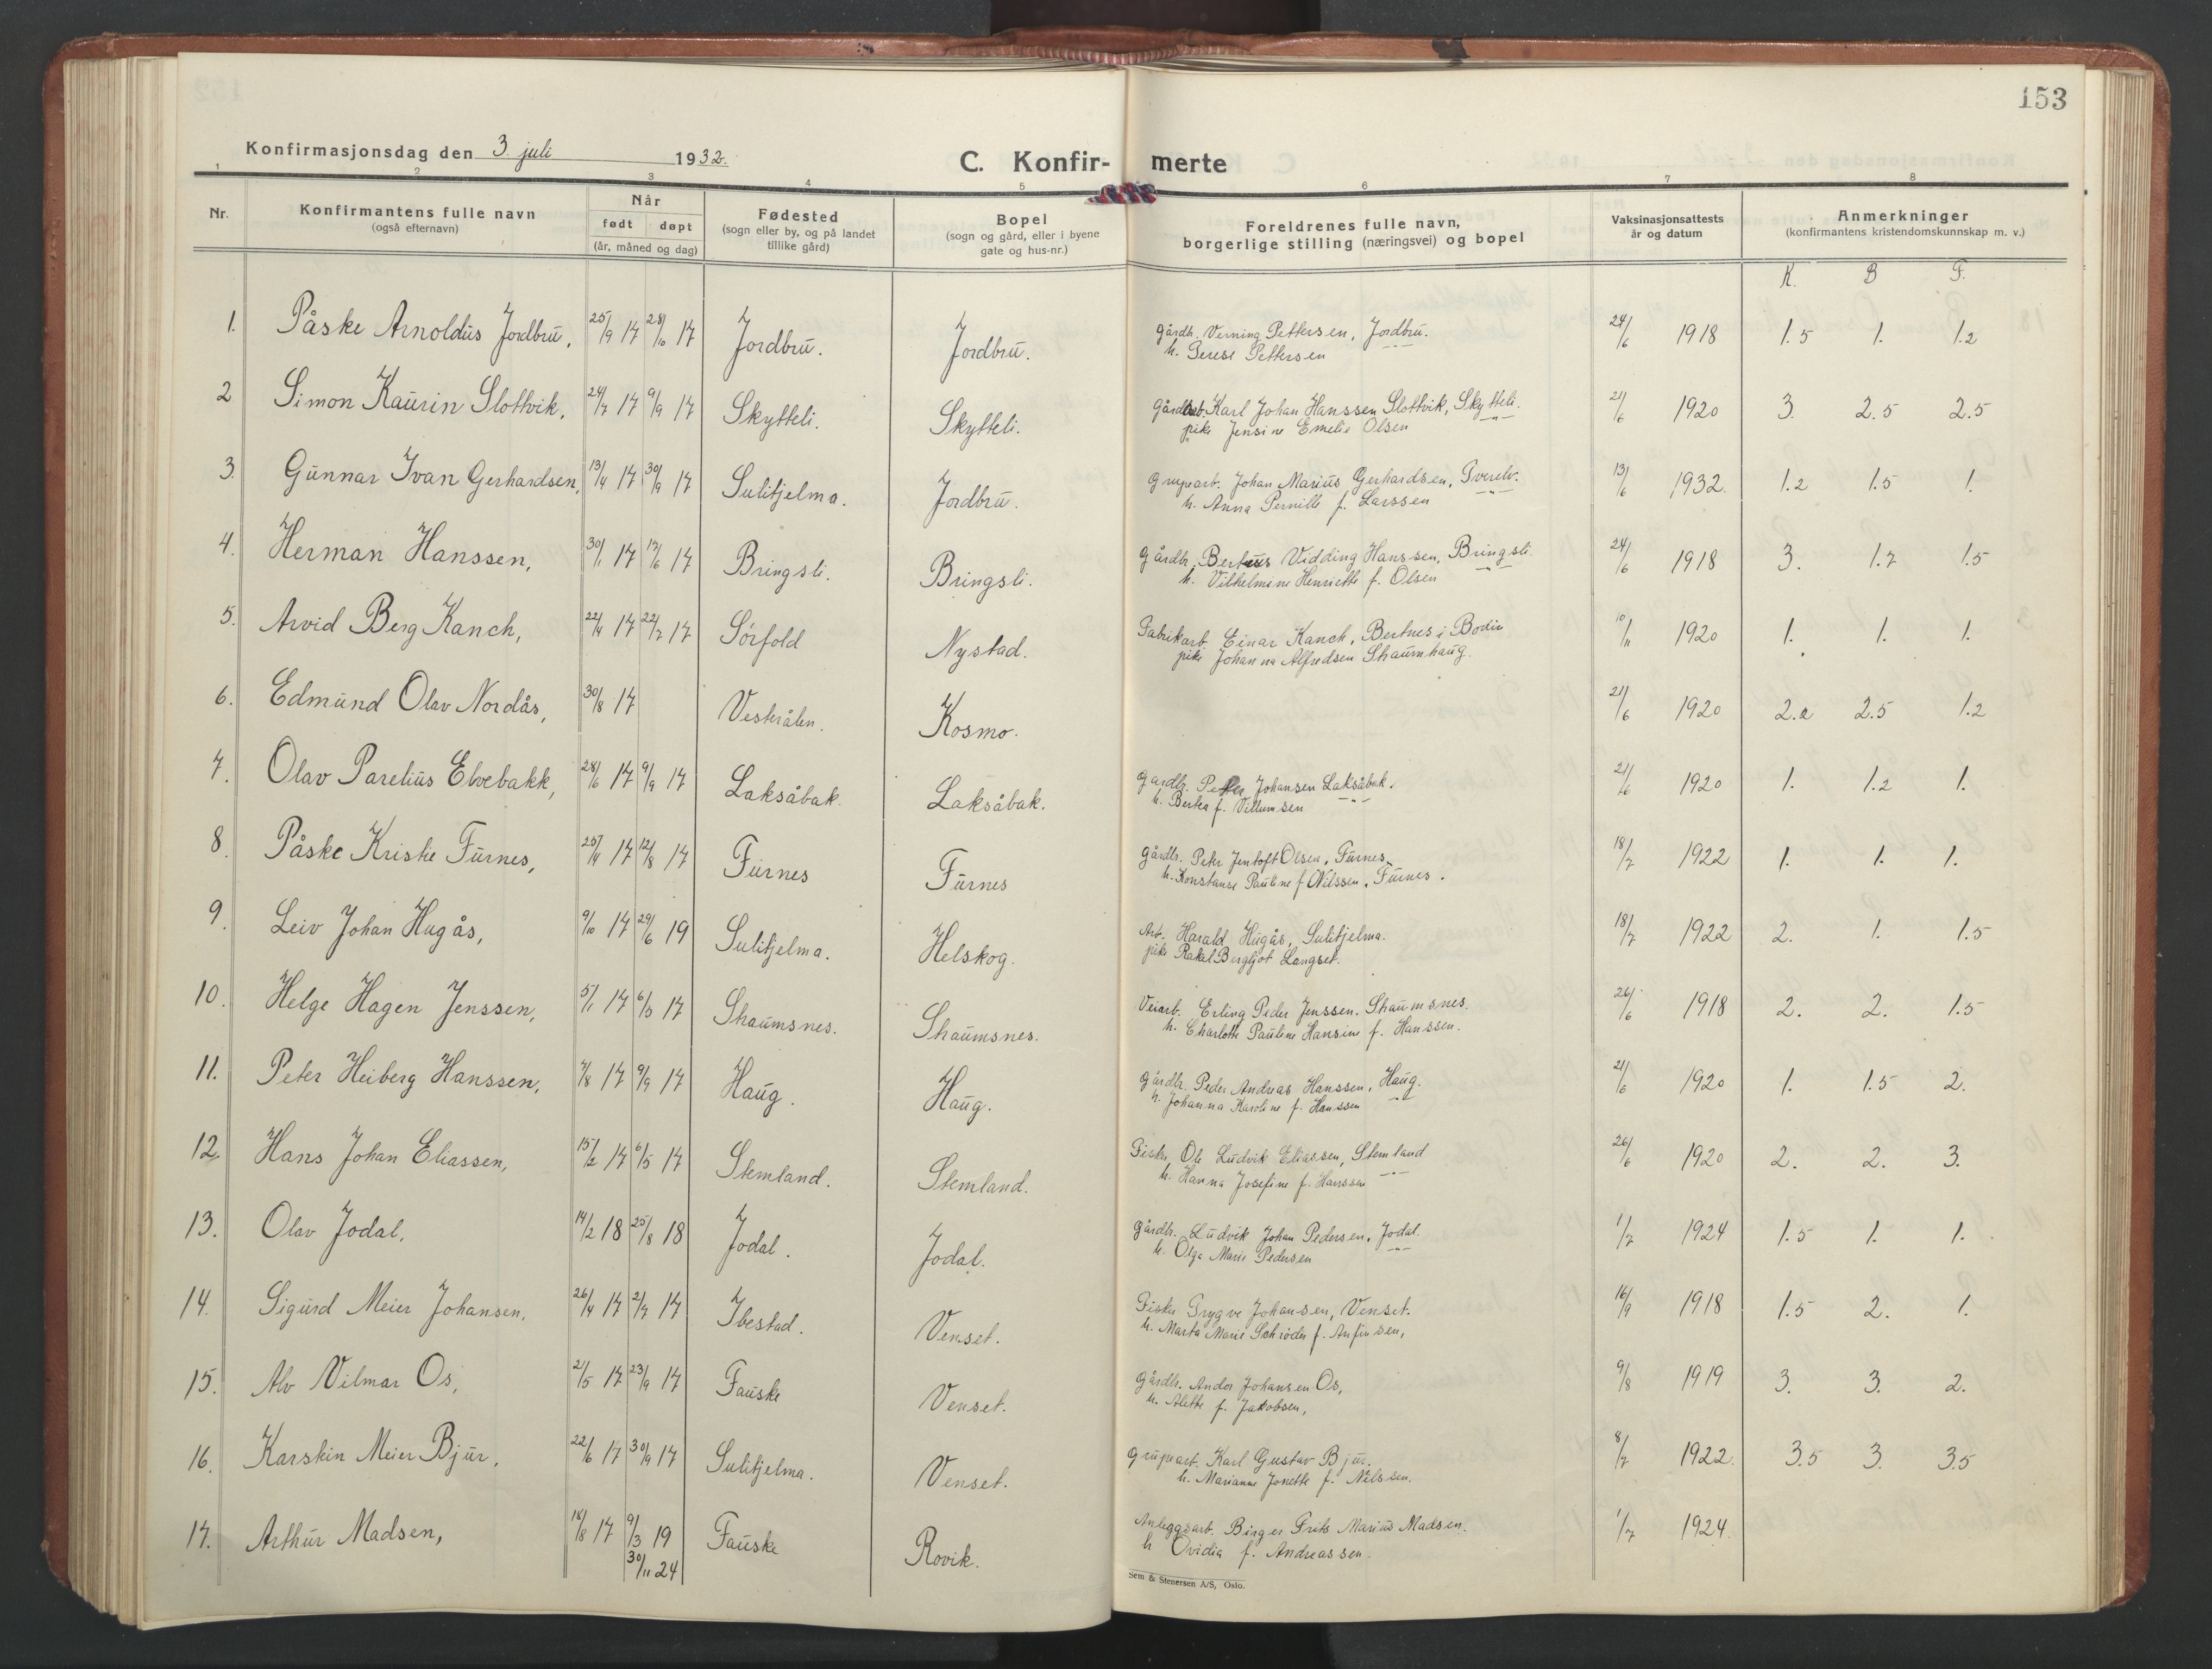 153
Konfirmasjonsdag den 3. juli 1932.
C. Konfir- merte
1 2 3 4 5 6 7 8
Nr. Konfirmantens fulle navn (også efternavn) Når født døpt (år, måned og dag) Fødested (sogn eller by, og på landet tillike gård) Bopel (sogn og gård, eller i byene gate og hus-nr.) Foreldrenes fulle navn, borgerlige stilling (næringsvei) og bopel Vaksinasjonsattests år og datum Anmerkninger (konfirmantens kristendomskunnskap m. v.)
K. B F.
1. Påske Arnoldus Jordbru, 25/9 17 28/10 17 Jordbru. Jordbru. Gårdbr. Verning Pettersen, Jordbru. 24/6 1918 1.5 1. 1.2
h. Terese Pettersen -"-
2 Simon Kaurin Slottvik, 24/7 17 9/9 17 Skytteli. Skytteli. Gårdarb. Karl Johan Hanssen Slottvik, Skytteli. 21/6 1920 3. 2.5 2.5
pike Jensine Emelie Olsen -"-
3. Gunnar Ivan Gerhardsen, 13/4 17 30/9 17 Sulitjelma. Jordbru. Grupearb. Johan Marius Gerhardsen, Tverelv. 13/6 1932. 1.2 1.5 1.
h. Anna Pernille f. Larssen -"-
4. Herman Hanssen, 30/1 17 17/6 17 Bringsli. Bringsli. Gårdbr. Berteus Vidding Hanssen, Bringsli. 24/6 1918 3. 1.7 1.5
h. Vilhelmine Henriette f. Olsen -"-
5. Arvid Berg Kanch, 22/4 17 22/7 17 Sørfold Nystad. Fabrikarb. Einar Kanch, Bertnes i Bodin 10/11 1920 1. 1. 1.
pike Johanna Alfredsen Skaumhaug.
6. Edmund Olav Nordås, 30/8 17 Vesterålen. Kosmo. 21/6 1920 2.2 2.5 1.2
7. Olav Parelius Elvebakk, 28/6 17 9/9 17 Laksåbak. Laksåbak. Gardbr. Petter Johansen Laksåbak. 21/6 1920 1. 1.2 1.
h. Berta f. Villumsen -"-
8. Påske Kriste Furnes, 25/4 17 12/8 17 Furnes Furnes Gårdbr. Peter Jentoft Olsen, Furnes. 18/7 1922 1. 1. 1.
h. Konstanse Pauline f. Nilssen, Furnes.
9. Leiv Johan Hugås, 9/10 17 29/6 19 Sulitjelma. Helskog. Arb. Harald Hugås, Sulitjelma. 18/7 1922 2. 1. 1.5
pike Rakel Bergljot Langset.
10. Helge Hagen Jenssen, 5/1 17 6/5 17 Skaumsnes. Skaumsnes. Veiarb. Erling Peder Jenssen. Skaumsnes. 26/6 1918 2. 2. 1.5
h. Charlotte Pauline Hansine f. Hanssen.
11. Peter Heiberg Hanssen, 7/8 17 9/9 17 Haug. Haug. Gårdbr. Peder Andreas Hanssen, Haug. 21/6 1920 1. 1.5 2.
h. Johanna Karoline f. Hanssen -"-
12. Hans Johan Eliassen, 15/2 17 6/5 17 Stemland. Stemland. Fisker Ole Ludvik Eliassen, Stemland 26/6 1920 2. 2. 3.
h. Hanna Josefine f. Hanssen -"-
13. Olav Jodal, 14/2 18 25/8 18 Jodal. Jodal. Gårdbr. Ludvik Johan Pedersen, Jodal. 1/7 1924 1.5 1. 1.
h. Olga Marie Pedersen -"-
14. Sigurd Meier Johansen, 26/4 17 2/7 17 Ibestad. Venset. Fisker Trygve Johansen, Venset. 16/9 1918 1.5 2. 1.
h. Marta Marie Schrøder f. Anfinsen,
15. Alv Vilmar Os, 2/5 17 23/9 17 Fauske Venset. Gårdbr. Andor Johansen Os, 9/8 1919 3. 3. 2.
h. Alette f. Jakobsen,
16. Karstein Meier Bjur, 22/6 17 30/9 17 Sulitjelma. Venset. Grupearb. Karl Gustav Bjur. 8/7 1922. 3.5 3. 3.5
h. Marianne Jonette f. Nilssen.
17. Arthur Madsen, 18/8 17 9/3 19 Fauske Rovik. Anleggsarb. Birger Frits Marius Madsen. 1/7 1924.
30/11 24 h Ovidia f. Andreassen.
Sem & Stenersen A/S, Oslo.